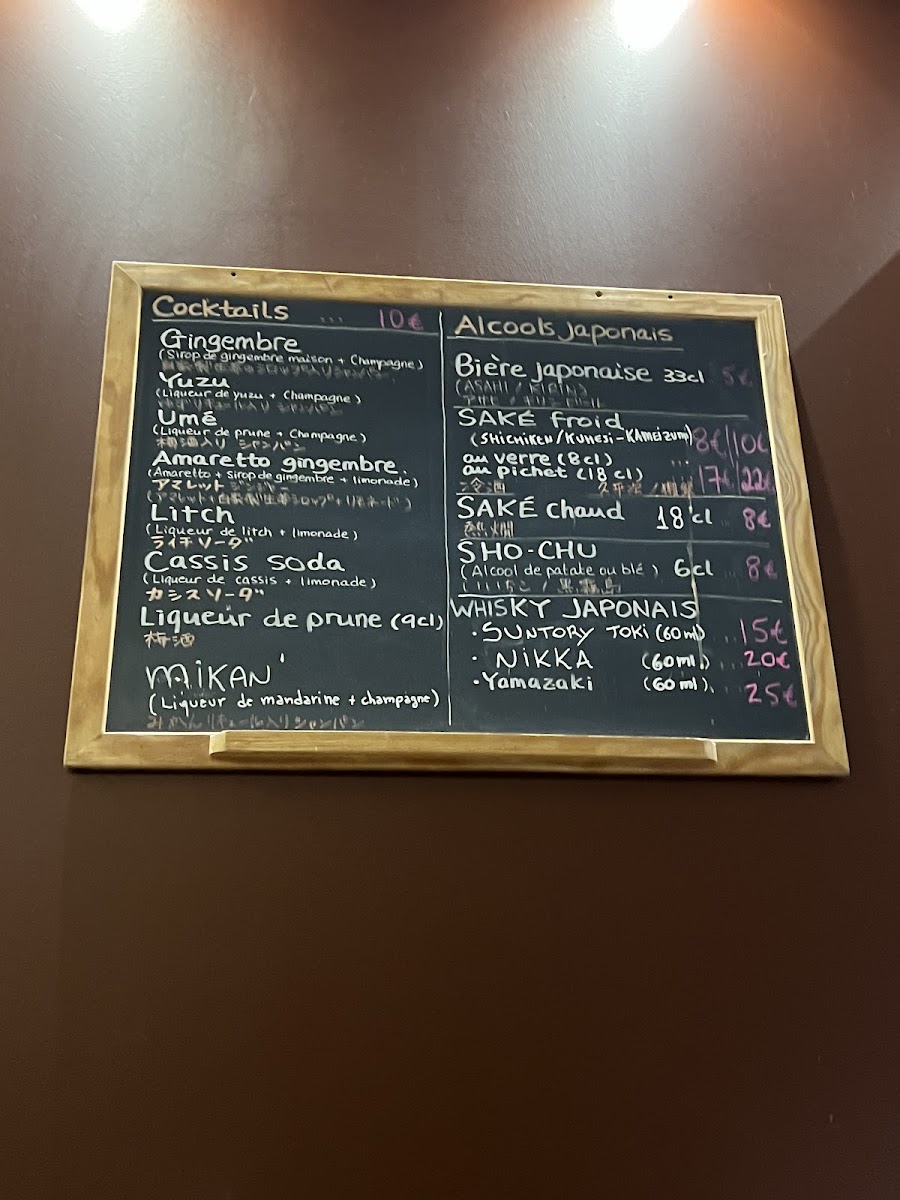 Cocktails ... 10€
Gingembre
(Sirop de gingembre maison + Champagne)
Yuzu
(Liqueur de yuzu + Champagne)
Umé
(Liqueur de prune + Champagne)
梅酒入り シャンパン
Amaretto gingembre.
(Amaretto + sirop de gingembre + limonade)
アマレット
Litch
(Liqueur de litch + limonade)
ライチソーダ
Cassis soda
(Liqueur de cassis + limonade)
カシスソーダ
Liqueur de prune (9cl)
梅酒
MIKAN'
(Liqueur de mandarine + champagne)
みかんリキュール入りシャンパン
Alcools japonais
Bière japonaise 33cl 5€
(ASAHI / KIRIN)
SAKÉ froid
(SHICHIKEN/KUHESI-KAMEIZUMI) 8€/10€
au verre (8cl) ...
au pichet (18cl) 17€/22€
冷酒
SAKÉ chaud 18cl 8€
熱燗
SHO-CHU
(Alcool de patate ou blé) 6cl 8€
いいちこ / 黒霧島
WHISKY JAPONAIS
·SUNTORY TOKI (60ml) ...15€
· NIKKA (60ml.) ...20€
·Yamazaki (60ml). 25€